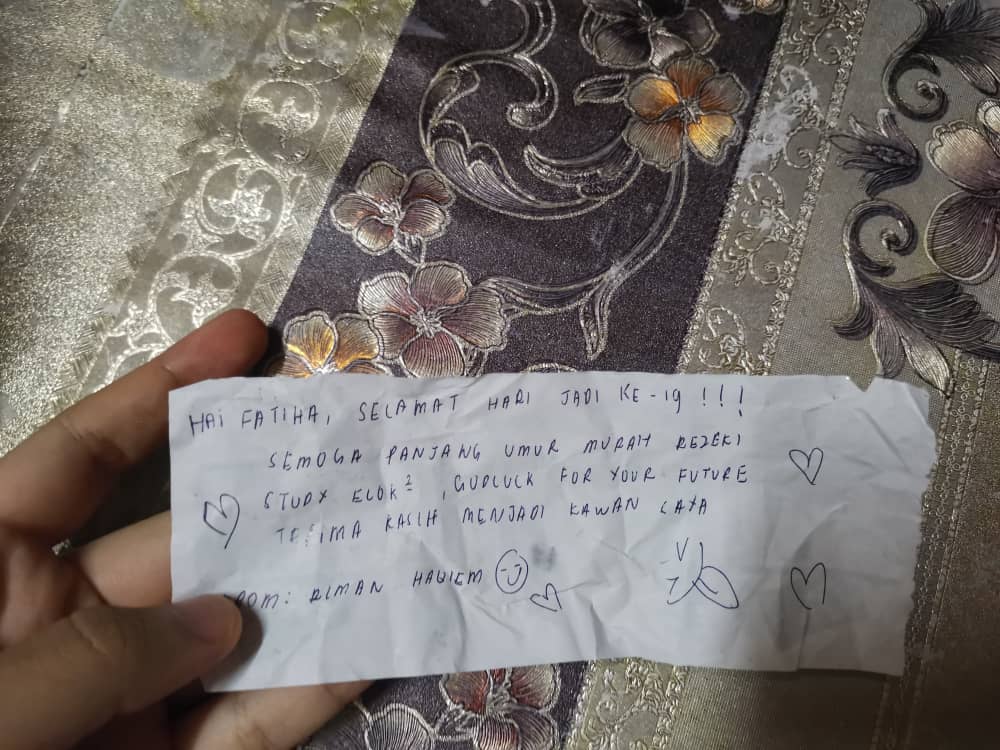 HAI FATIHA, SELAMAT HARI JADI KE-19 !!!
SEMOGA PANJANG UMUR MURAH REZEKI
STUDY ELOK², GUDLUCK FOR YOUR FUTURE
TERIMA KASIH MENJADI KAWAN SAYA
ROM: AIMAN HAKIEM